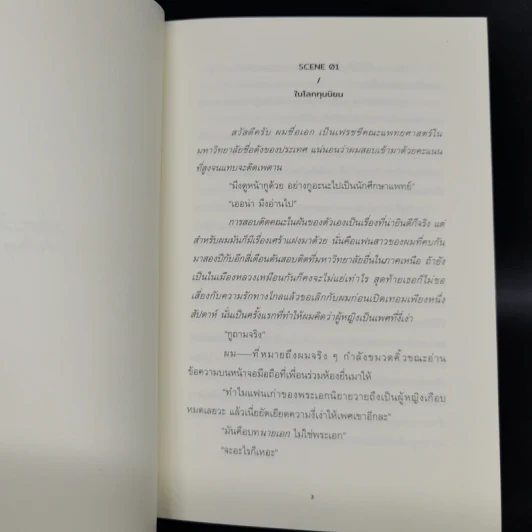 SCENE 01
/
ในโลกทุนนิยม
สวัสดีครับ ผมชื่อเอก เป็นเฟรชชี่คณะแพทยศาสตร์ใน
มหาวิทยาลัยชื่อดังของประเทศ แน่นอนว่าผมสอบเข้ามาด้วยคะแนน
ที่สูงจนแทบจะติดเพดาน
“มึงดูหน้ากูด้วย อย่างกูอะนะไปเป็นนักศึกษาแพทย์”
“เออน่า มึงอ่านไป”
การสอบติดคณะในฝันของตัวเองเป็นเรื่องที่น่ายินดีก็จริง แต่
สำหรับผมมันก็มีเรื่องเศร้าแฝงมาด้วย นั่นคือแฟนสาวของผมที่คบกัน
มาสองปีกับอีกสี่เดือนดันสอบติดที่มหาวิทยาลัยอื่นในภาคเหนือ ถ้ายัง
เป็นในเมืองหลวงเหมือนกันก็คงจะไม่แย่เท่าไร สุดท้ายเธอก็ไม่ขอ
เสี่ยงกับความรักทางไกลแล้วขอเลิกกับผมก่อนเปิดเทอมเพียงหนึ่ง
สัปดาห์ นั่นเป็นครั้งแรกที่ทำให้ผมคิดว่าผู้หญิงเป็นเพศที่งี่เง่า
“กูถามจริง”
ผม––ที่หมายถึงผมจริง ๆ กำลังขมวดคิ้วขณะอ่าน
ข้อความบนหน้าจอมือถือที่เพื่อนร่วมห้องยื่นมาให้
“ทำไมแฟนเก่าของพระเอกนิยายวายถึงเป็นผู้หญิงเกือบ
หมดเลยวะ แล้วเนี่ยยัดเยียดความงี่เง่าให้เพศเขาอีกละ”
“มันคือบทนายเอก ไม่ใช่พระเอก”
“จะอะไรก็เหอะ”
3